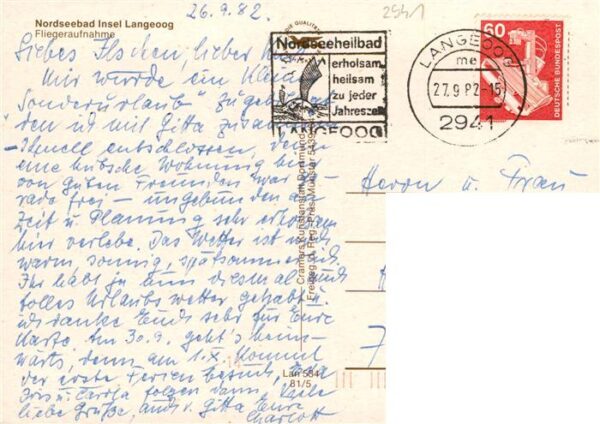 26.9.82.
2941
Nordseebad Insel Langeoog
Fliegeraufnahme
Liebes Ilschen, lieber
Mir wurde ein kleiner
"Sonderurlaub" zuge
den ich mit Gitta zusam
schnell entschlossen, denn
eine hübsche Wohnung hier
von guten Freunden war ge-
rade frei – ungebunden an
Zeit u. Planung sehr erholsam
hier verlebe. Das Wetter ist noch
warm, sonnig, spätsommerlich
Ihr habt ja nun diesmal auch
tolles Urlaubswetter gehabt u.
ich danke Euch sehr für Eure
Karte. Am 30.9. geht's heim-
wärts, denn am 1.X. kommt
der erste Ferienbesuch,
Iris u. folgen dann. Viele
liebe Grüße, auch v. Gitta Eure
Charlott
Nordseeheilbad
erholsam,
heilsam
zu jeder
Jahreszeit
LANGEOOG
LANGEOOG
me
27.9.82-15
2941
60
DEUTSCHE BUNDESPOST
Herrn u. Frau
7
Cramers Kunstanstalt Dortmund
Freigeg. d. Reg.-Präs. Münster 5439
Lan 584
81/5